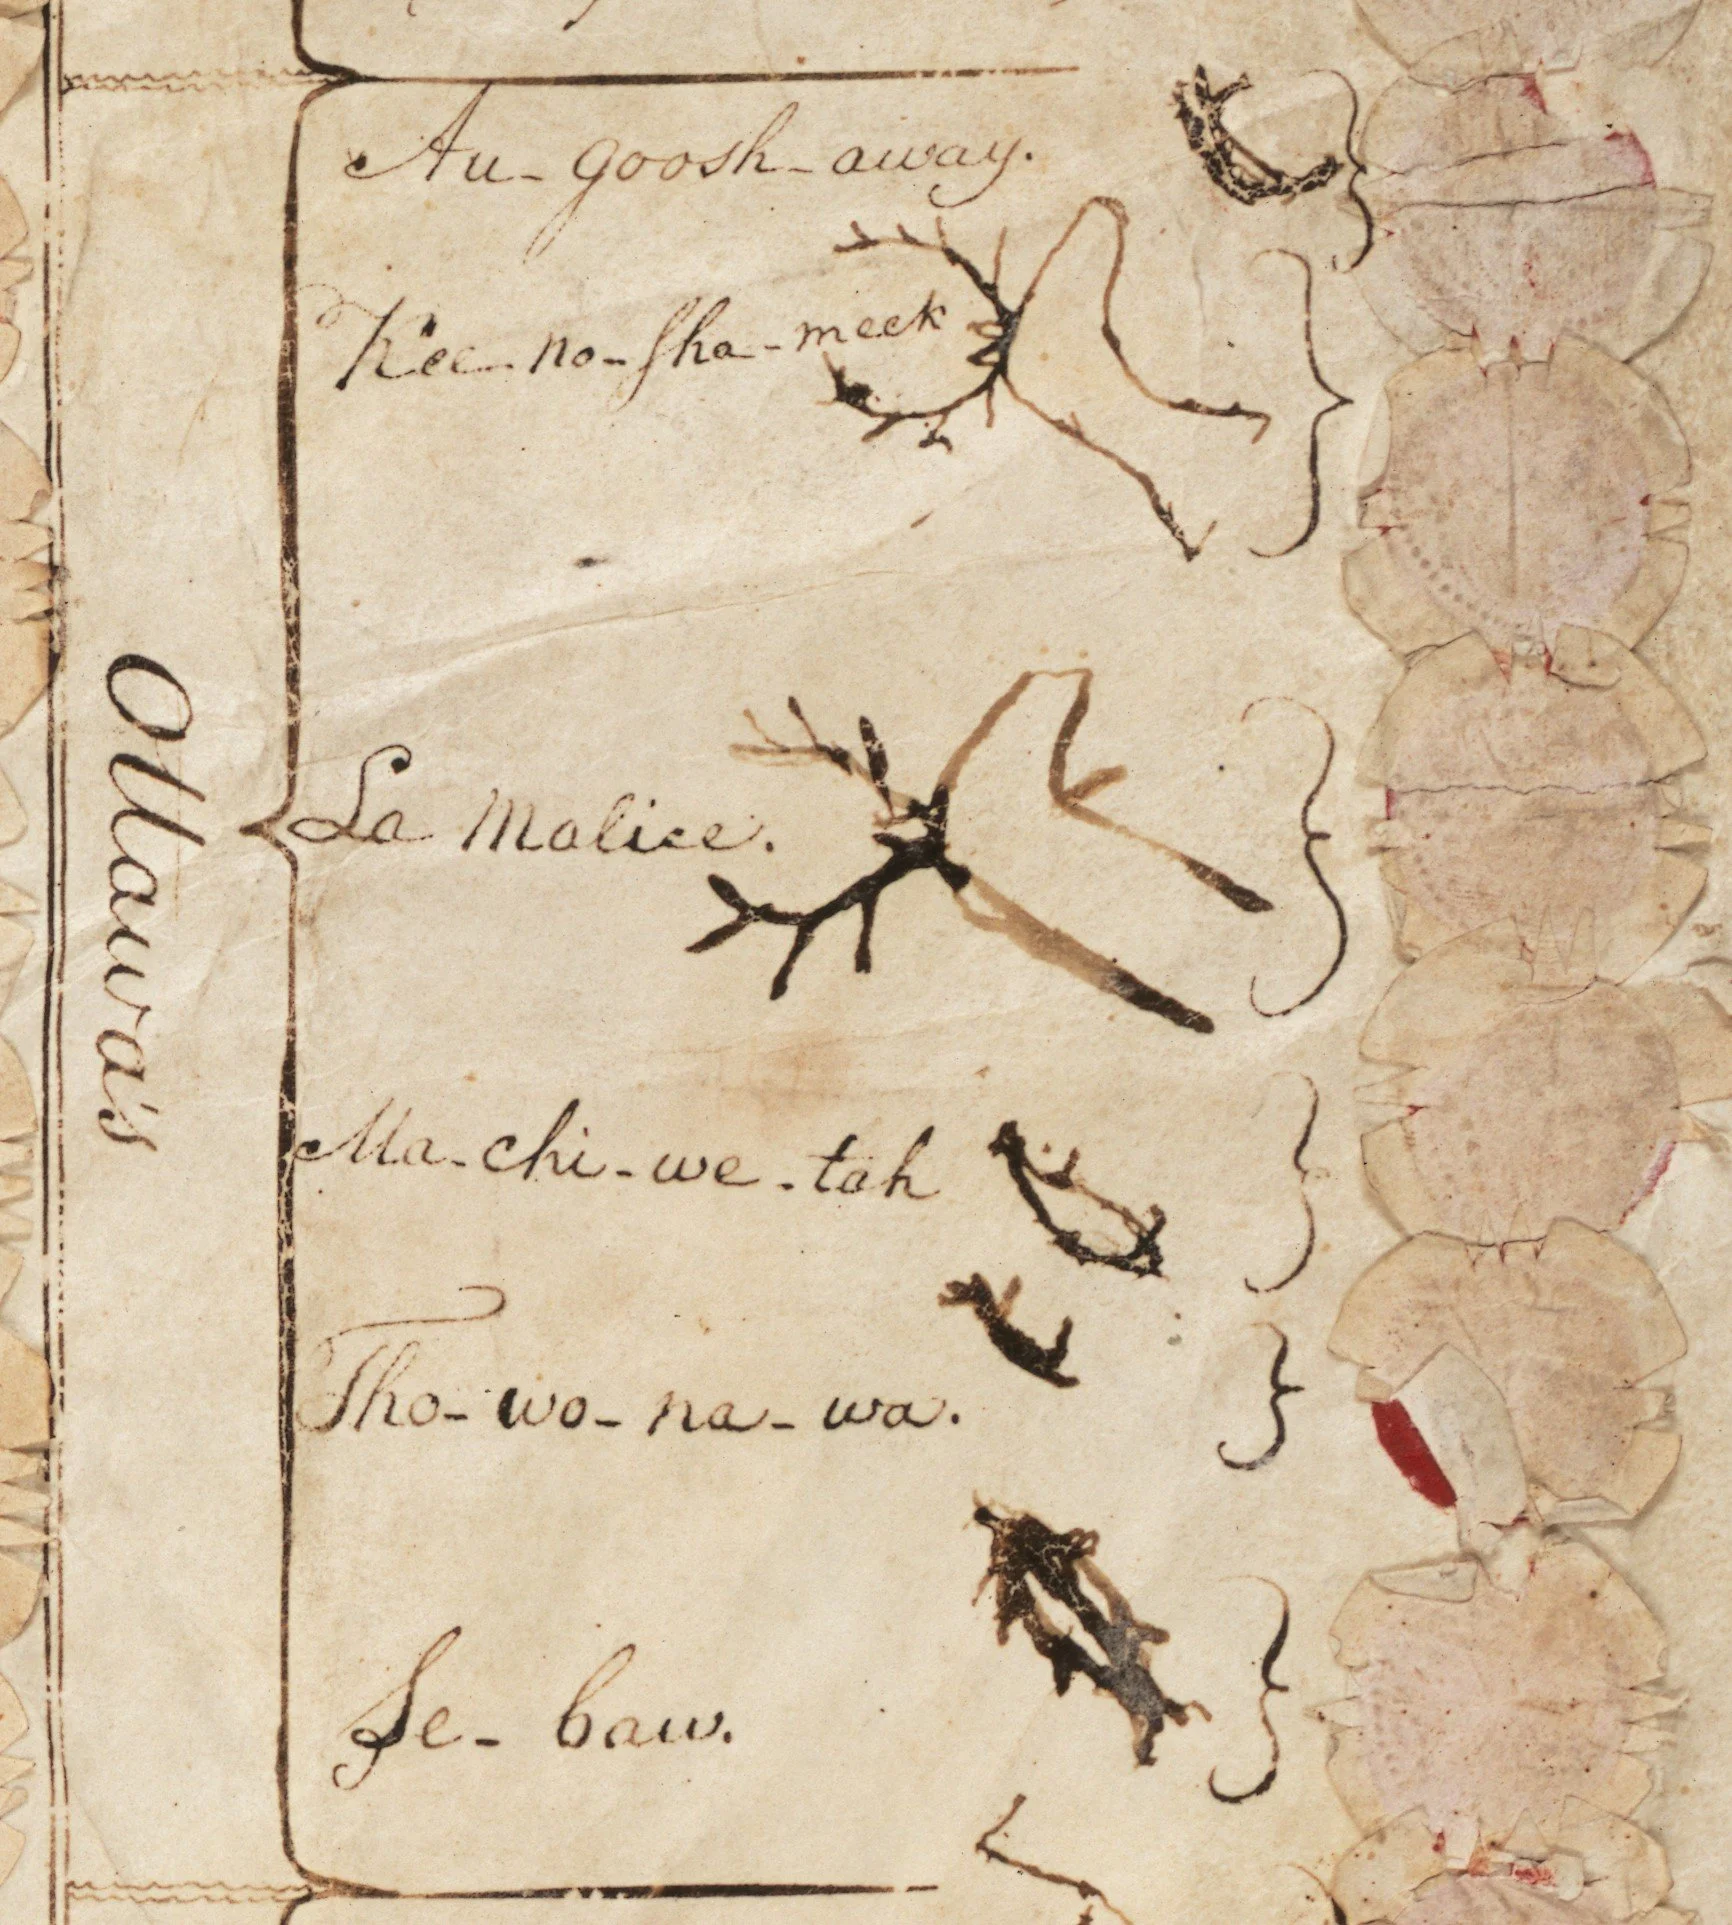 Ottawa's
Au-goosh-away.
Kee-no-sha-meek
La Malice.
Ma-chi-we-tah
Tho-wo-na-wa.
Se-baw.